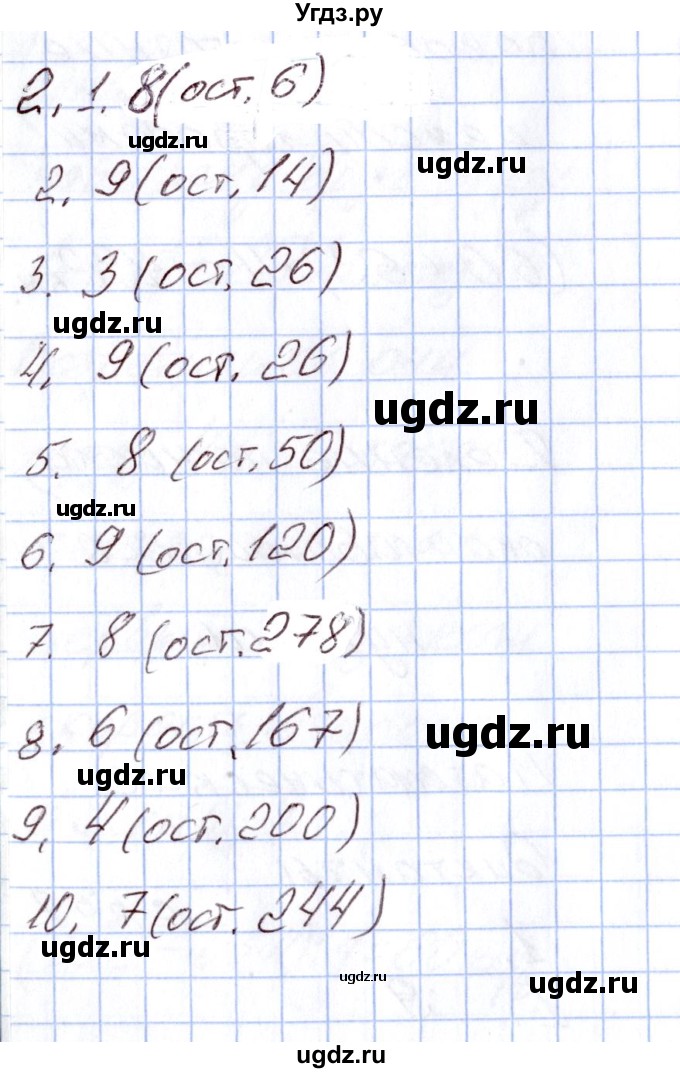 Угдз.ру
2. 1. 8(ост. 6)
ugdz.ru
ugdz.ru
2. 9(ост. 14)
3. 3(ост. 26)
ugdz.ru
4. 9(ост. 26)
ugdz.ru
5. 8 (ост. 50)
ugdz.ru
6. 9 (ост. 120)
7. 8 (ост. 278)
8. 6 (ост. 167)
ugdz.ru
ugdz.ru
9. 4(ост. 200)
10. 7(ост. 244)
ugdz.ru
ugdz.ru
ugdz.ru
ugdz.ru